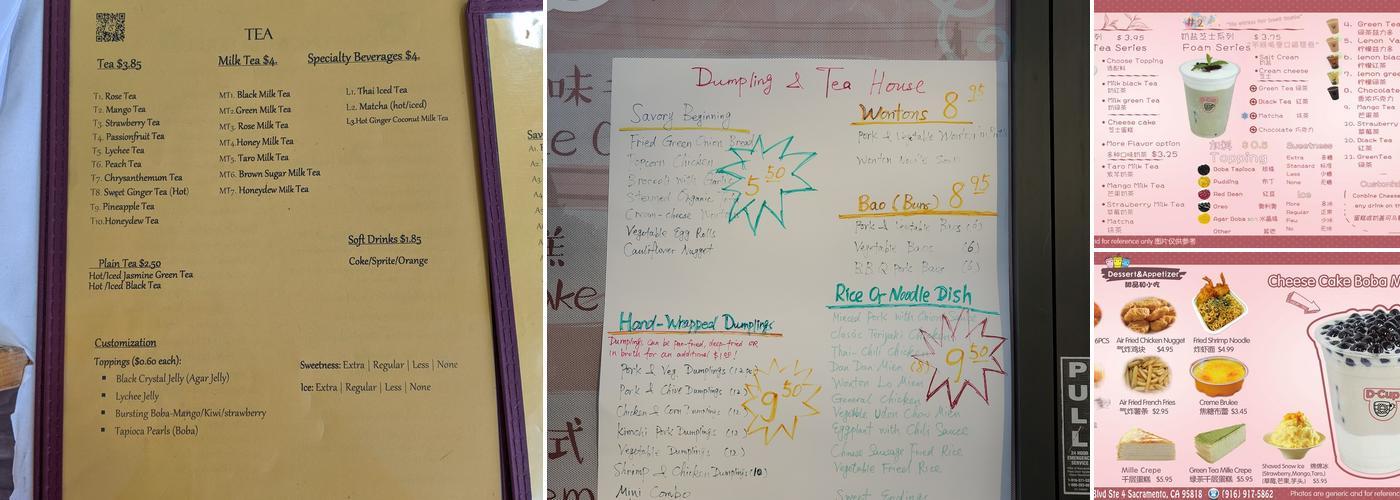 TEA
Tea $3.85
T1. Rose Tea
T2. Mango Tea
T3. Strawberry Tea
T4. Passionfruit Tea
T5. Lychee Tea
T6. Peach Tea
T7. Chrysanthemum Tea
T8. Sweet Ginger Tea (Hot)
T9. Pineapple Tea
T10. Honeydew Tea
Milk Tea $4.
MT1. Black Milk Tea
MT2. Green Milk Tea
MT3. Rose Milk Tea
MT4. Honey Milk Tea
MT5. Taro Milk Tea
MT6. Brown Sugar Milk Tea
MT7. Honeydew Milk Tea
Specialty Beverages $4.
L1. Thai Iced Tea
L2. Matcha (hot/iced)
L3. Hot Ginger Coconut Milk Tea
Soft Drinks $1.85
Coke/Sprite/Orange
Plain Tea $2.50
Hot/Iced Jasmine Green Tea
Hot /Iced Black Tea
Customization
Toppings ($0.60 each):
Black Crystal Jelly (Agar Jelly)
Lychee Jelly
Bursting Boba-Mango/Kiwi/strawberry
Tapioca Pearls (Boba)
Sweetness: Extra | Regular | Less | None
Ice: Extra | Regular | Less | None
Dumpling & Tea House
Savory Beginning
Fried Green Onion Bread
Popcorn Chicken
Broccoli with Garlic
Steamed Organic
5.50
Vegetable Egg Rolls
Cauliflower Nugget
Hand-Wrapped Dumplings
Dumplings can be pan-fried, deep-fried or
in broth for an additional
Pork & Veg. Dumplings
Pork & Chive Dumplings
Chicken & Corn Dumplings
Kimchi Pork Dumplings
Vegetable Dumplings
Shrimp & Chicken Dumplings (10)
Mini Combo
9.50
Wontons 8.95
Pork & Vegetable Wonton
Wonton Soup
Bao (Buns) 8.95
Pork & Vegetable Buns (6)
Vegetable Buns (6)
B.B.Q Pork Buns
Rice Or Noodle Dish
Minced Pork with
Classic Teriyaki Chicken
Thai-Chili Chicken
Dan Dan Mien
Wonton Lo Mien
General Chicken
Vegetable Udon Chow Mien
Eggplant with Chili Sauce
Chinese Sausage Fried Rice
Vegetable Fried Rice
9.50
PULL
$3.95
Tea Series
Choose Topping
Milk black Tea
Milk green Tea
Cheese cake
芝士蛋糕
More Flavor option
$3.25
Taro Milk Tea
Mango Milk Tea
芒果奶茶
Strawberry Milk Tea
草莓奶茶
Matcha
抹茶
#2
奶盐芝士系列 $3.75
Foam Series
Salt Cream
Cream cheese
芝士
Green Tea 绿茶
Black Tea 红茶
Matcha 抹茶
Chocolate 巧克力
加料 $0.5
Topping
Boba Tapioca 珍珠
Pudding 布丁
Red Bean 红豆
Oreo 奥利奥
Agar Boba
Other
Sweetness
Extra 多糖
Standard 标准
Less 少糖
None 无糖
Ice
More 多冰
Regular 正常
Few 少冰
None 无冰
4. Green Tea
5. Lemon
6. lemon black
7. lemon
8. Chocolate
香浓巧克力
9. Mango Tea
芒果茶
10. Strawberry
草莓茶
红茶
绿茶
for reference only 图片仅供参考
Dessert&Appetizer
甜品和小吃
Cheese Cake Boba
6PCS
Air Fried Chicken Nugget
气炸鸡块 $4.95
Fried Shrimp Noodle
炸虾面 $4.99
Air Fried French Fries
气炸薯条 $2.95
Creme Brulee
焦糖布蕾 $3.45
Mille Crepe
千层蛋糕 $5.95
Green Tea Mille Crepe
绿茶千层蛋糕 $5.95
Shaved Snow Ice 绵绵冰
(Strawberry,Mango,Taro,)
(草莓,芒果,芋头) $5.95
D-Cup
Blvd Ste 4 Sacramento, CA 95818 (916) 917-5862
Photos are generic and for